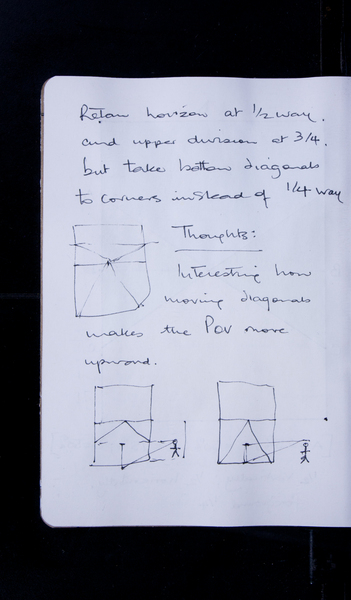 Retain horizon at 1/2 way.
and upper division at 3/4.
but take bottom diagonals
to corners instead of 1/4 way
Thoughts:
Interesting how
moving diagonals
makes the POV move
upward.